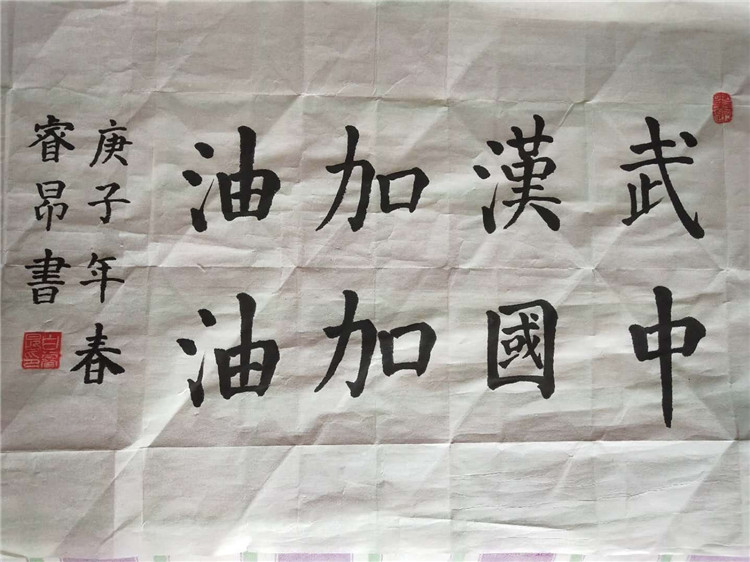 武漢加油
中國加油
庚子年春
睿昂書